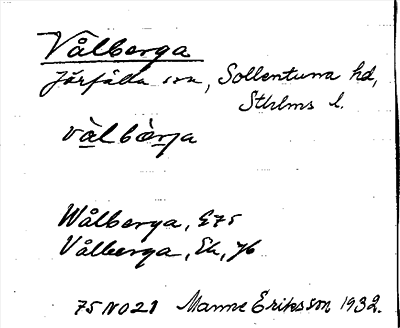 Vålberga
Järfälla sn, Sollentuna hd,
Sthlms l.
vàlbærja
Wålberga, E75
Vålberga, Ek, Jb
75NO21 Manne Eriksson 1932.